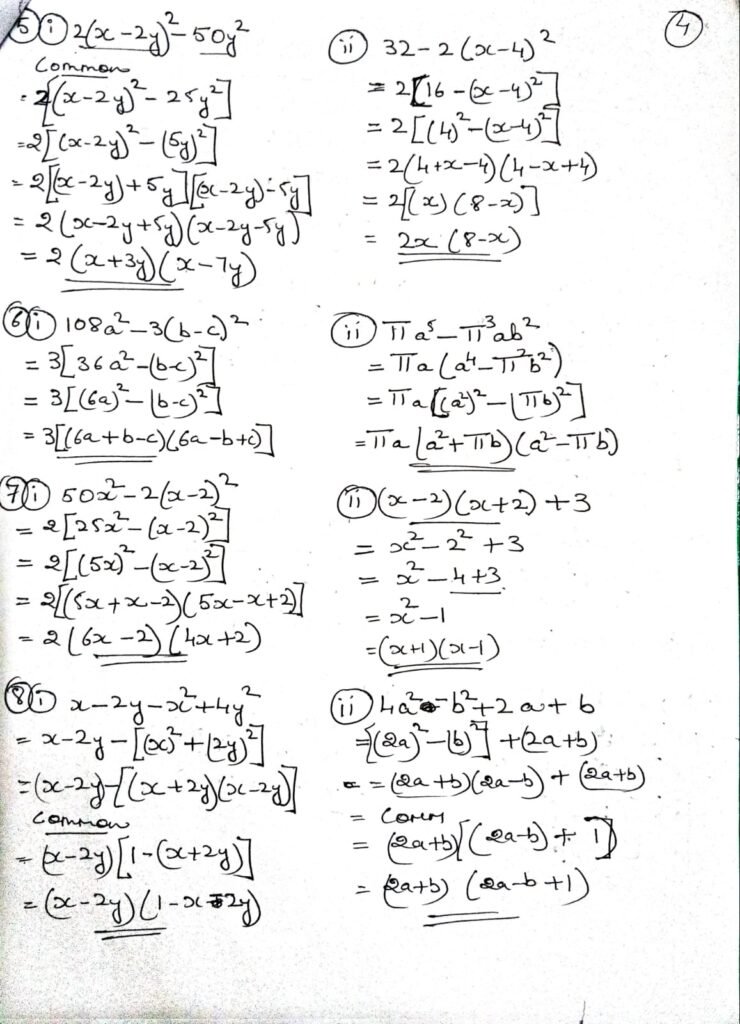 4
5 i 2(x-2y)² - 50y²
Common
= 2[(x-2y)² - 25y²]
= 2[(x-2y)² - (5y)²]
= 2[(x-2y)+5y][(x-2y)-5y]
= 2(x-2y+5y)(x-2y-5y)
= 2(x+3y)(x-7y)
ii 32 - 2(x-4)²
= 2[16 - (x-4)²]
= 2[(4)² - (x-4)²]
= 2(4+x-4)(4-x+4)
= 2[(x)(8-x)]
= 2x(8-x)
6 i 108a² - 3(b-c)²
= 3[36a² - (b-c)²]
= 3[(6a)² - (b-c)²]
= 3[(6a+b-c)(6a-b+c)]
ii πa⁵ - π³ab²
= πa(a⁴ - π²b²)
= πa[(a²)² - (πb)²]
= πa(a²+πb)(a²-πb)
7 i 50x² - 2(x-2)²
= 2[25x² - (x-2)²]
= 2[(5x)² - (x-2)²]
= 2[(5x+x-2)(5x-x+2)]
= 2(6x-2)(4x+2)
ii (x-2)(x+2) + 3
= x² - 2² + 3
= x² - 4+3
= x² - 1
= (x+1)(x-1)
8 i x-2y-x²+4y²
= x-2y - [(x)² + (2y)²]
= (x-2y) - [(x+2y)(x-2y)]
Common
= (x-2y)[1-(x+2y)]
= (x-2y)(1-x-2y)
ii 4a² - b² + 2a + b
= [(2a)² - (b)²] + (2a+b)
= (2a+b)(2a-b) + (2a+b)
= Comm
= (2a+b)[(2a-b) + 1]
= (2a+b) (2a-b+1)